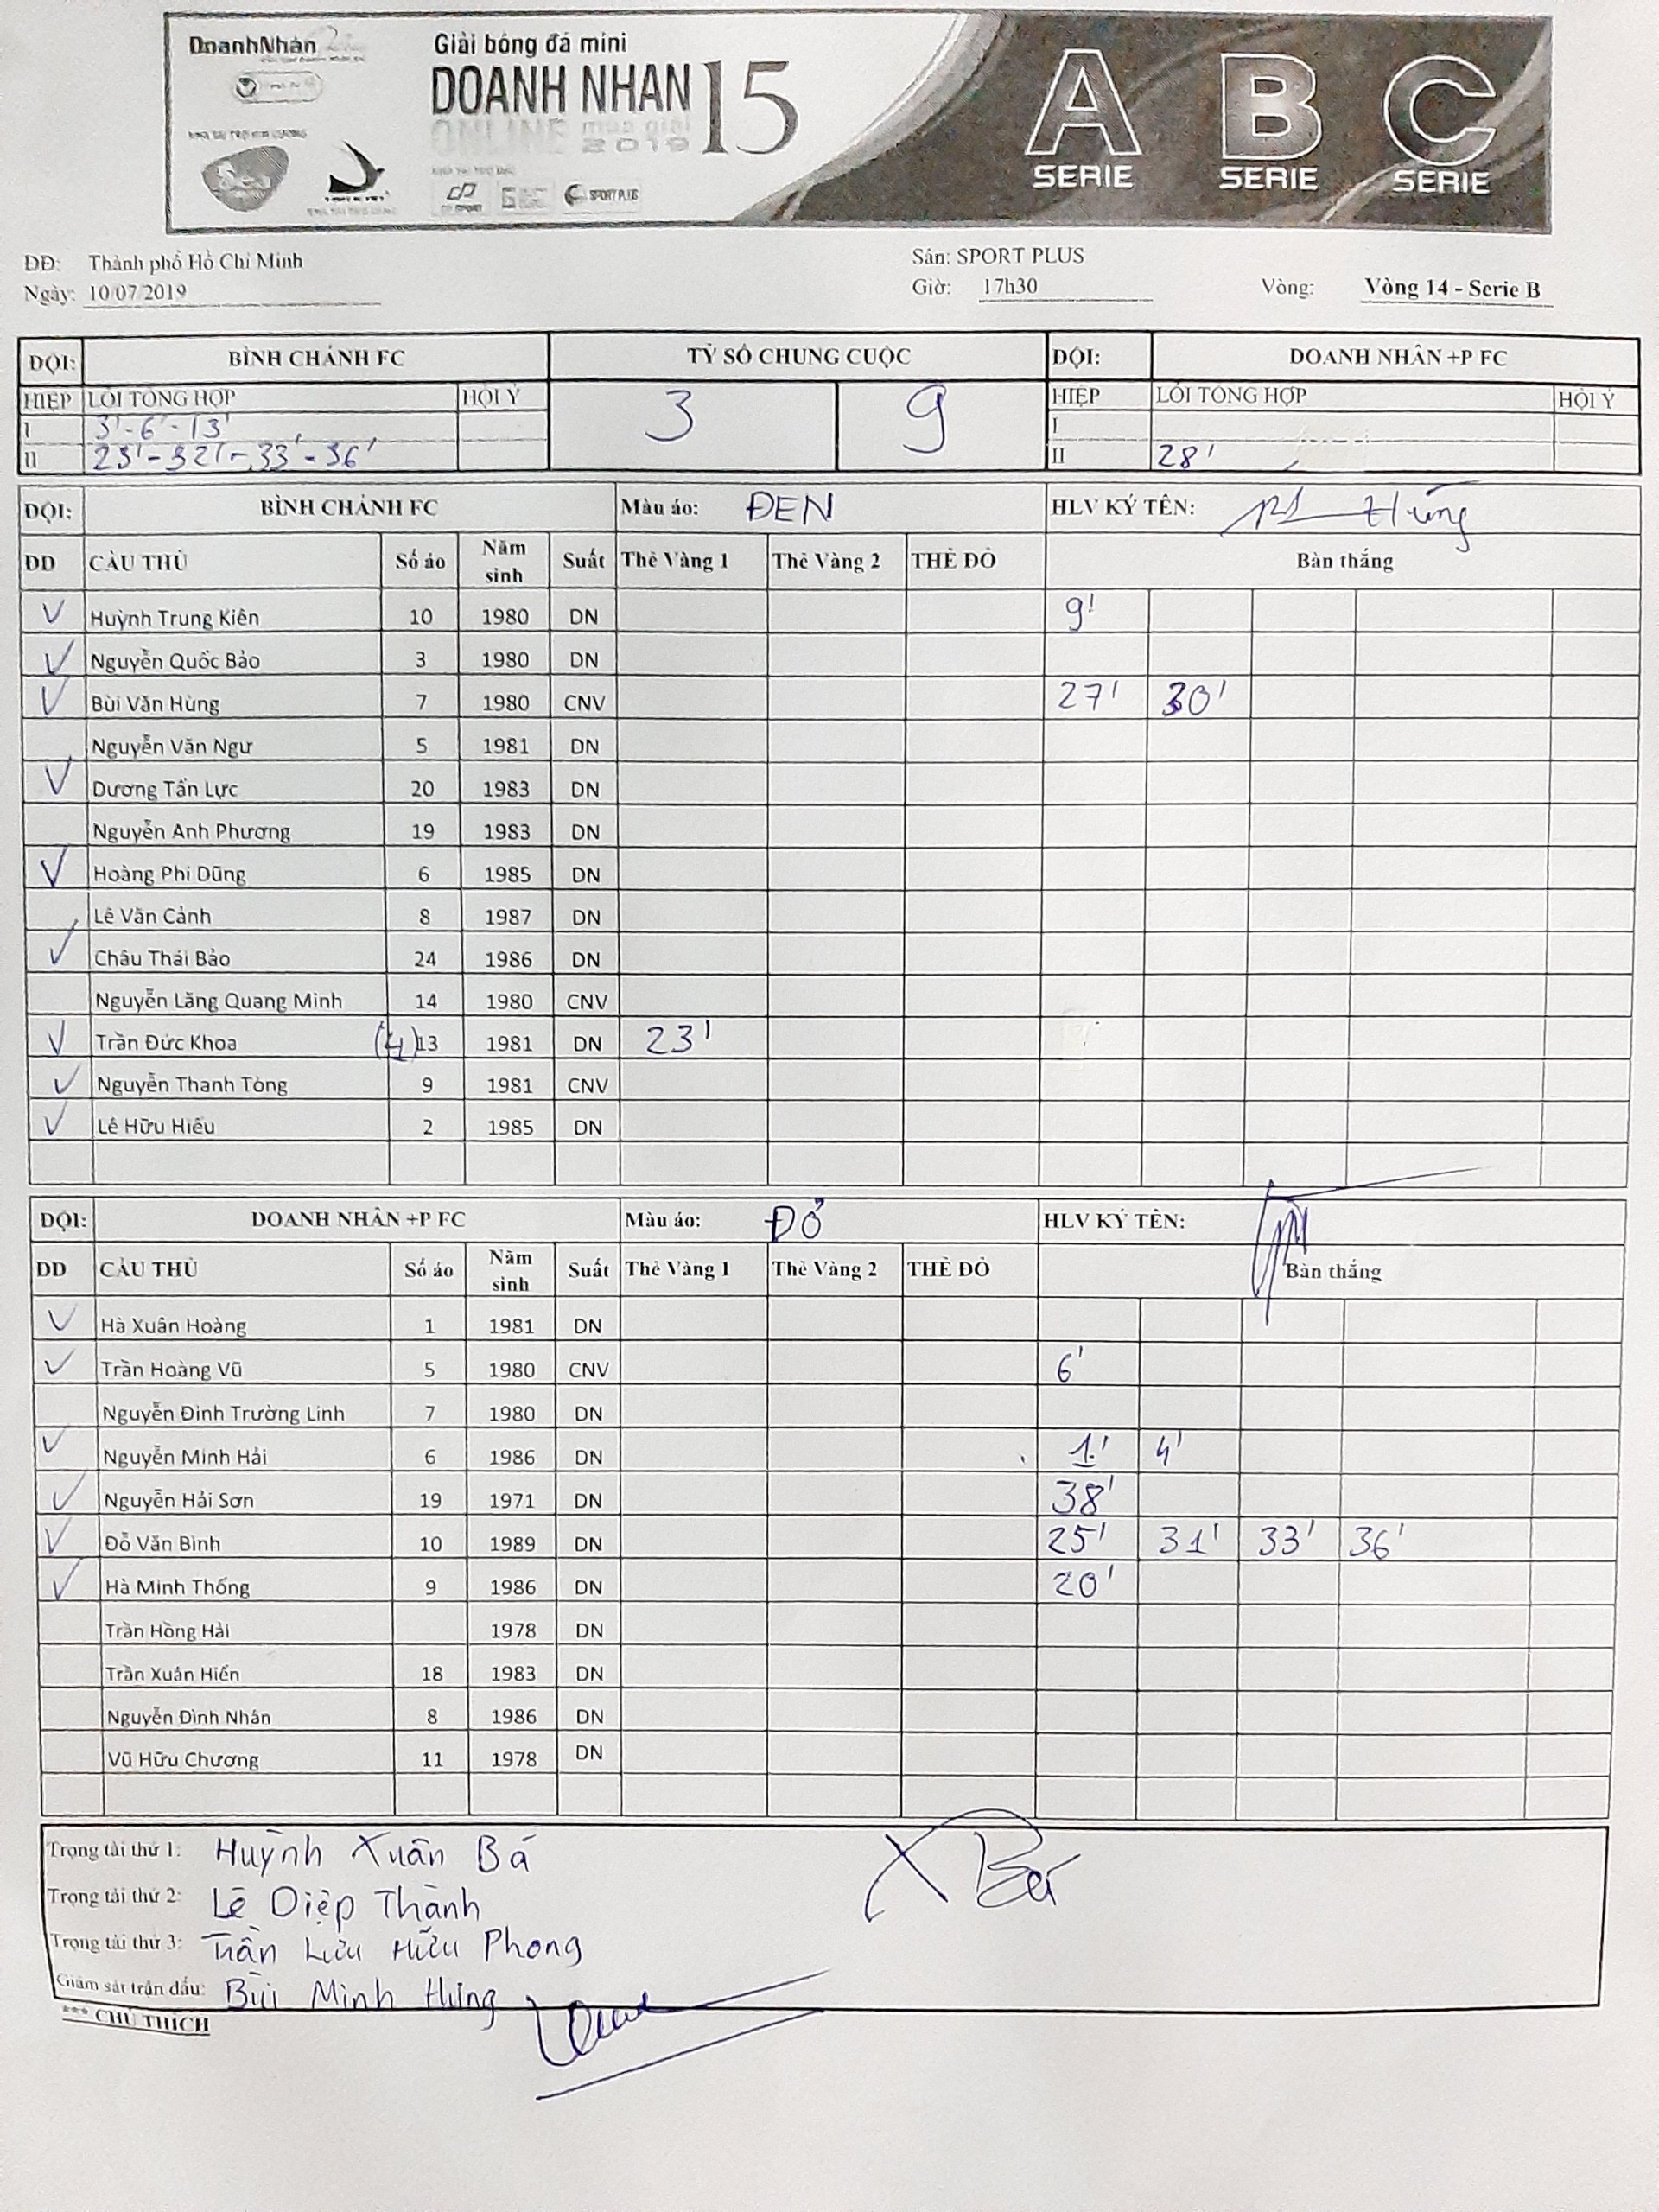 DoanhNhân
Giải bóng đá mini
DOANH NHAN 15
ONLINE mùa giải
2019
SPORT PLUS
A SERIE B SERIE C SERIE
ĐĐ: Thành phố Hồ Chí Minh Sân: SPORT PLUS
Ngày: 10/07/2019 Giờ: 17h30 Vòng: Vòng 14 - Serie B
ĐỘI: BÌNH CHÁNH FC TỶ SỐ CHUNG CUỘC ĐỘI: DOANH NHÂN +P FC
HIỆP LỖI TỔNG HỢP HỘI Ý 3 9 HIỆP LỖI TỔNG HỢP HỘI Ý
I 3' - 6' - 13' I
II 23' - 32' - 33' - 36' II 28'
ĐỘI: BÌNH CHÁNH FC Màu áo: ĐEN HLV KÝ TÊN: Hùng
DD CẦU THỦ Số áo Năm sinh Suất Thẻ Vàng 1 Thẻ Vàng 2 THẺ ĐỎ Bàn thắng
✓ Huỳnh Trung Kiên 10 1980 DN 9'
✓ Nguyễn Quốc Bảo 3 1980 DN
✓ Bùi Văn Hùng 7 1980 CNV 27' 30'
Nguyễn Văn Ngư 5 1981 DN
✓ Dương Tấn Lực 20 1983 DN
Nguyễn Anh Phương 19 1983 DN
✓ Hoàng Phi Dũng 6 1985 DN
Lê Văn Cảnh 8 1987 DN
✓ Châu Thái Bảo 24 1986 DN
Nguyễn Lăng Quang Minh 14 1980 CNV
✓ Trần Đức Khoa (4) 13 1981 DN 23'
✓ Nguyễn Thanh Tòng 9 1981 CNV
✓ Lê Hữu Hiếu 2 1985 DN
ĐỘI: DOANH NHÂN +P FC Màu áo: ĐỎ HLV KÝ TÊN:
DD CẦU THỦ Số áo Năm sinh Suất Thẻ Vàng 1 Thẻ Vàng 2 THẺ ĐỎ Bàn thắng
✓ Hà Xuân Hoàng 1 1981 DN
✓ Trần Hoàng Vũ 5 1980 CNV 6'
Nguyễn Đình Trường Linh 7 1980 DN
✓ Nguyễn Minh Hải 6 1986 DN 1' 4'
✓ Nguyễn Hải Sơn 19 1971 DN 38'
✓ Đỗ Văn Bình 10 1989 DN 25' 31' 33' 36'
✓ Hà Minh Thống 9 1986 DN 20'
Trần Hồng Hải 1978 DN
Trần Xuân Hiến 18 1983 DN
Nguyễn Đình Nhân 8 1986 DN
Vũ Hữu Chương 11 1978 DN
Trọng tài thứ 1: Huỳnh Xuân Bá X Bá
Trọng tài thứ 2: Lê Diệp Thành
Trọng tài thứ 3: Trần Lưu Hữu Phong
Giám sát trận đấu: Bùi Minh Hưng
*** CHÚ THÍCH